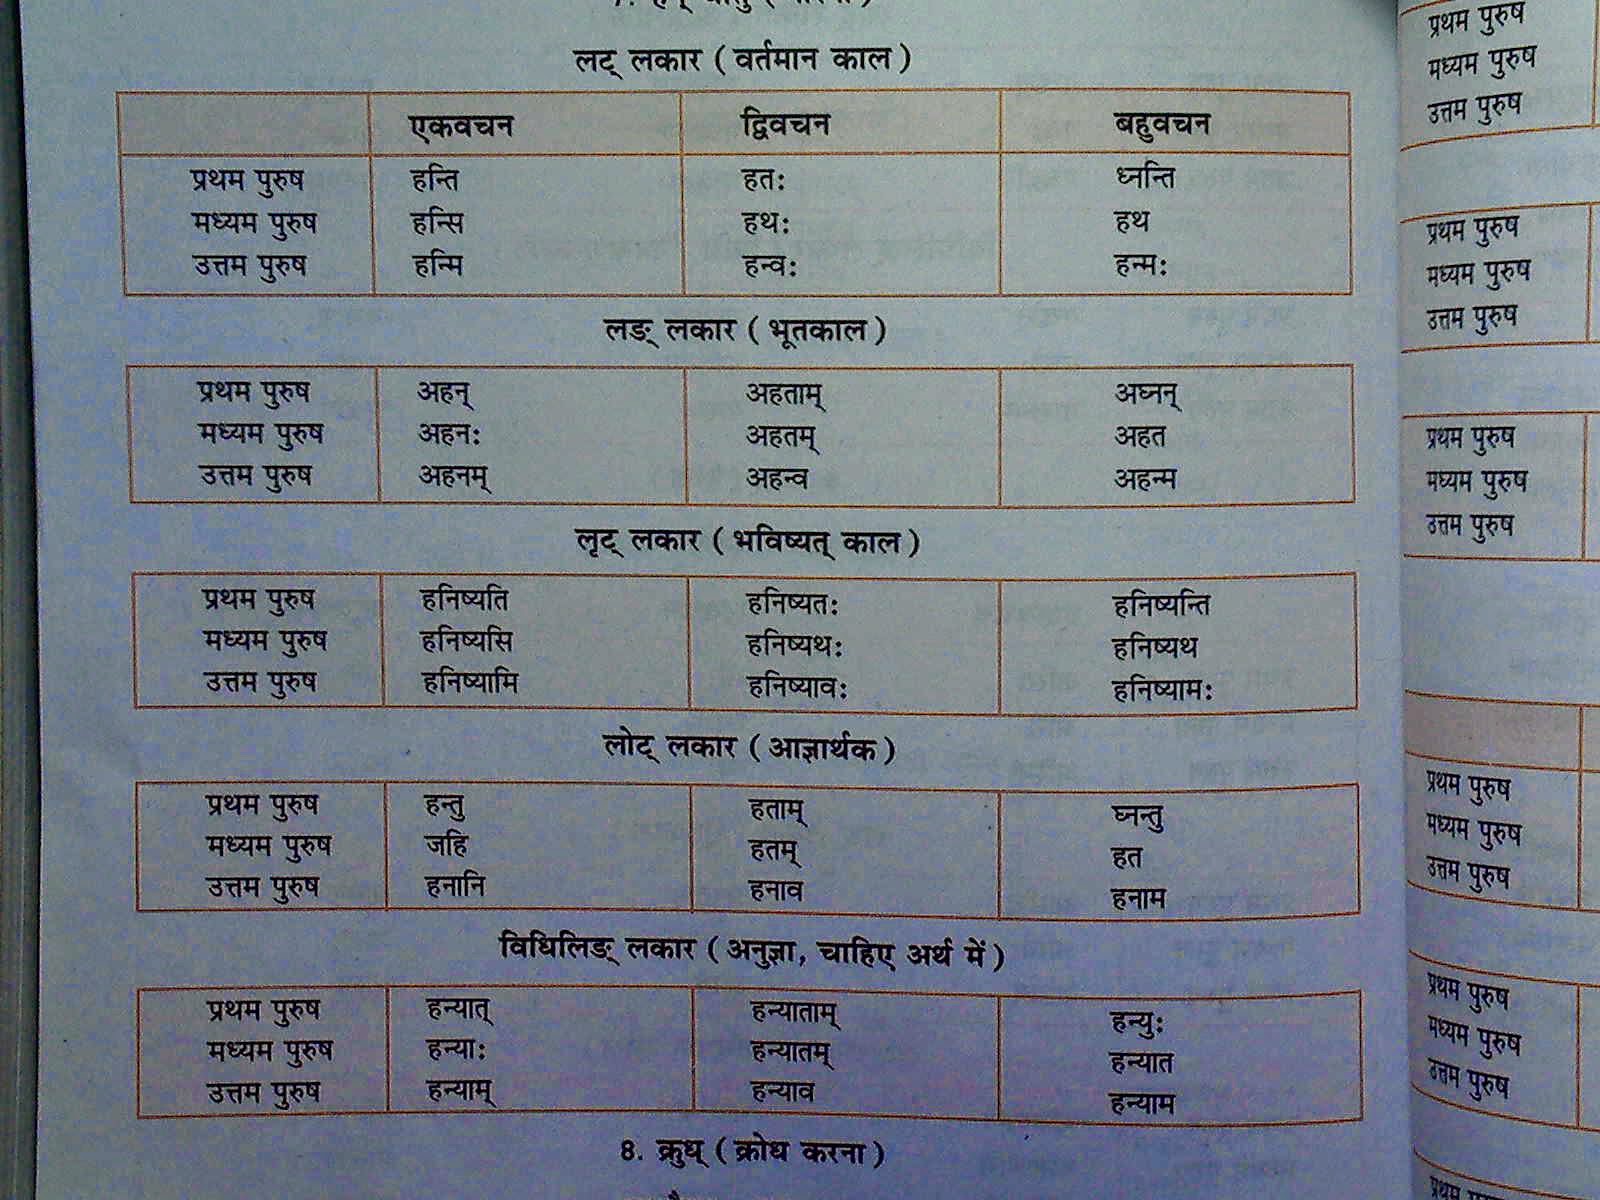 लट् लकार ( वर्तमान काल )
एकवचन द्विवचन बहुवचन
प्रथम पुरुष हन्ति हतः ध्नन्ति
मध्यम पुरुष हन्सि हथः हथ
उत्तम पुरुष हन्मि हन्वः हन्मः
लङ् लकार ( भूतकाल )
प्रथम पुरुष अहन् अहताम् अघ्नन्
मध्यम पुरुष अहनः अहतम् अहत
उत्तम पुरुष अहनम् अहन्व अहन्म
लृट् लकार ( भविष्यत् काल )
प्रथम पुरुष हनिष्यति हनिष्यतः हनिष्यन्ति
मध्यम पुरुष हनिष्यसि हनिष्यथः हनिष्यथ
उत्तम पुरुष हनिष्यामि हनिष्यावः हनिष्यामः
लोट् लकार ( आज्ञार्थक )
प्रथम पुरुष हन्तु हताम् घ्नन्तु
मध्यम पुरुष जहि हतम् हत
उत्तम पुरुष हनानि हनाव हनाम
विधिलिङ् लकार ( अनुज्ञा, चाहिए अर्थ में )
प्रथम पुरुष हन्यात् हन्याताम् हन्युः
मध्यम पुरुष हन्याः हन्यातम् हन्यात
उत्तम पुरुष हन्याम् हन्याव हन्याम
8. क्रुध् ( क्रोध करना )
प्रथम पुरुष
मध्यम पुरुष
उत्तम पुरुष
प्रथम पुरुष
मध्यम पुरुष
उत्तम पुरुष
प्रथम पुरुष
मध्यम पुरुष
उत्तम पुरुष
प्रथम पुरुष
मध्यम पुरुष
उत्तम पुरुष
प्रथम पुरुष
मध्यम पुरुष
उत्तम पुरुष
प्रथम पुरुष